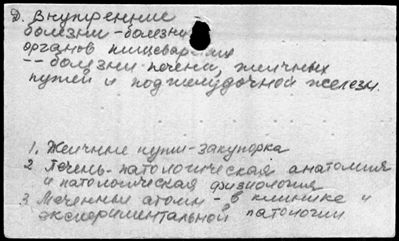 Д. Внутренние
болезни - болезни
органов пищеварения
-- болезни печени, желчных
путей и поджелудочной железы.
1. Желчные пути - закупорка
2 Печень - патологическая анатомия
и патологическая физиология
3 Меченные атомы - в клинике и
экспериментальной патологии